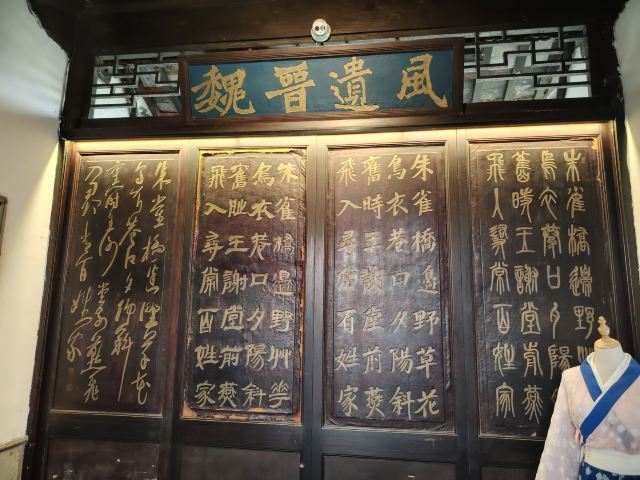 魏晉遺風
朱雀橋邊野艸
烏衣巷口夕陽
舊時王謝堂前燕
飛入尋常百姓家
朱雀橋邊野草花
烏衣巷口夕陽斜
舊時王謝堂前燕
飛入尋常百姓家
朱雀橋邊野艸華
烏衣巷口夕陽斜
舊時王謝堂前燕
飛入尋常百姓家
朱雀橋邊野草花
烏衣巷口夕陽斜
舊時王謝堂前燕飛
入尋常百姓家